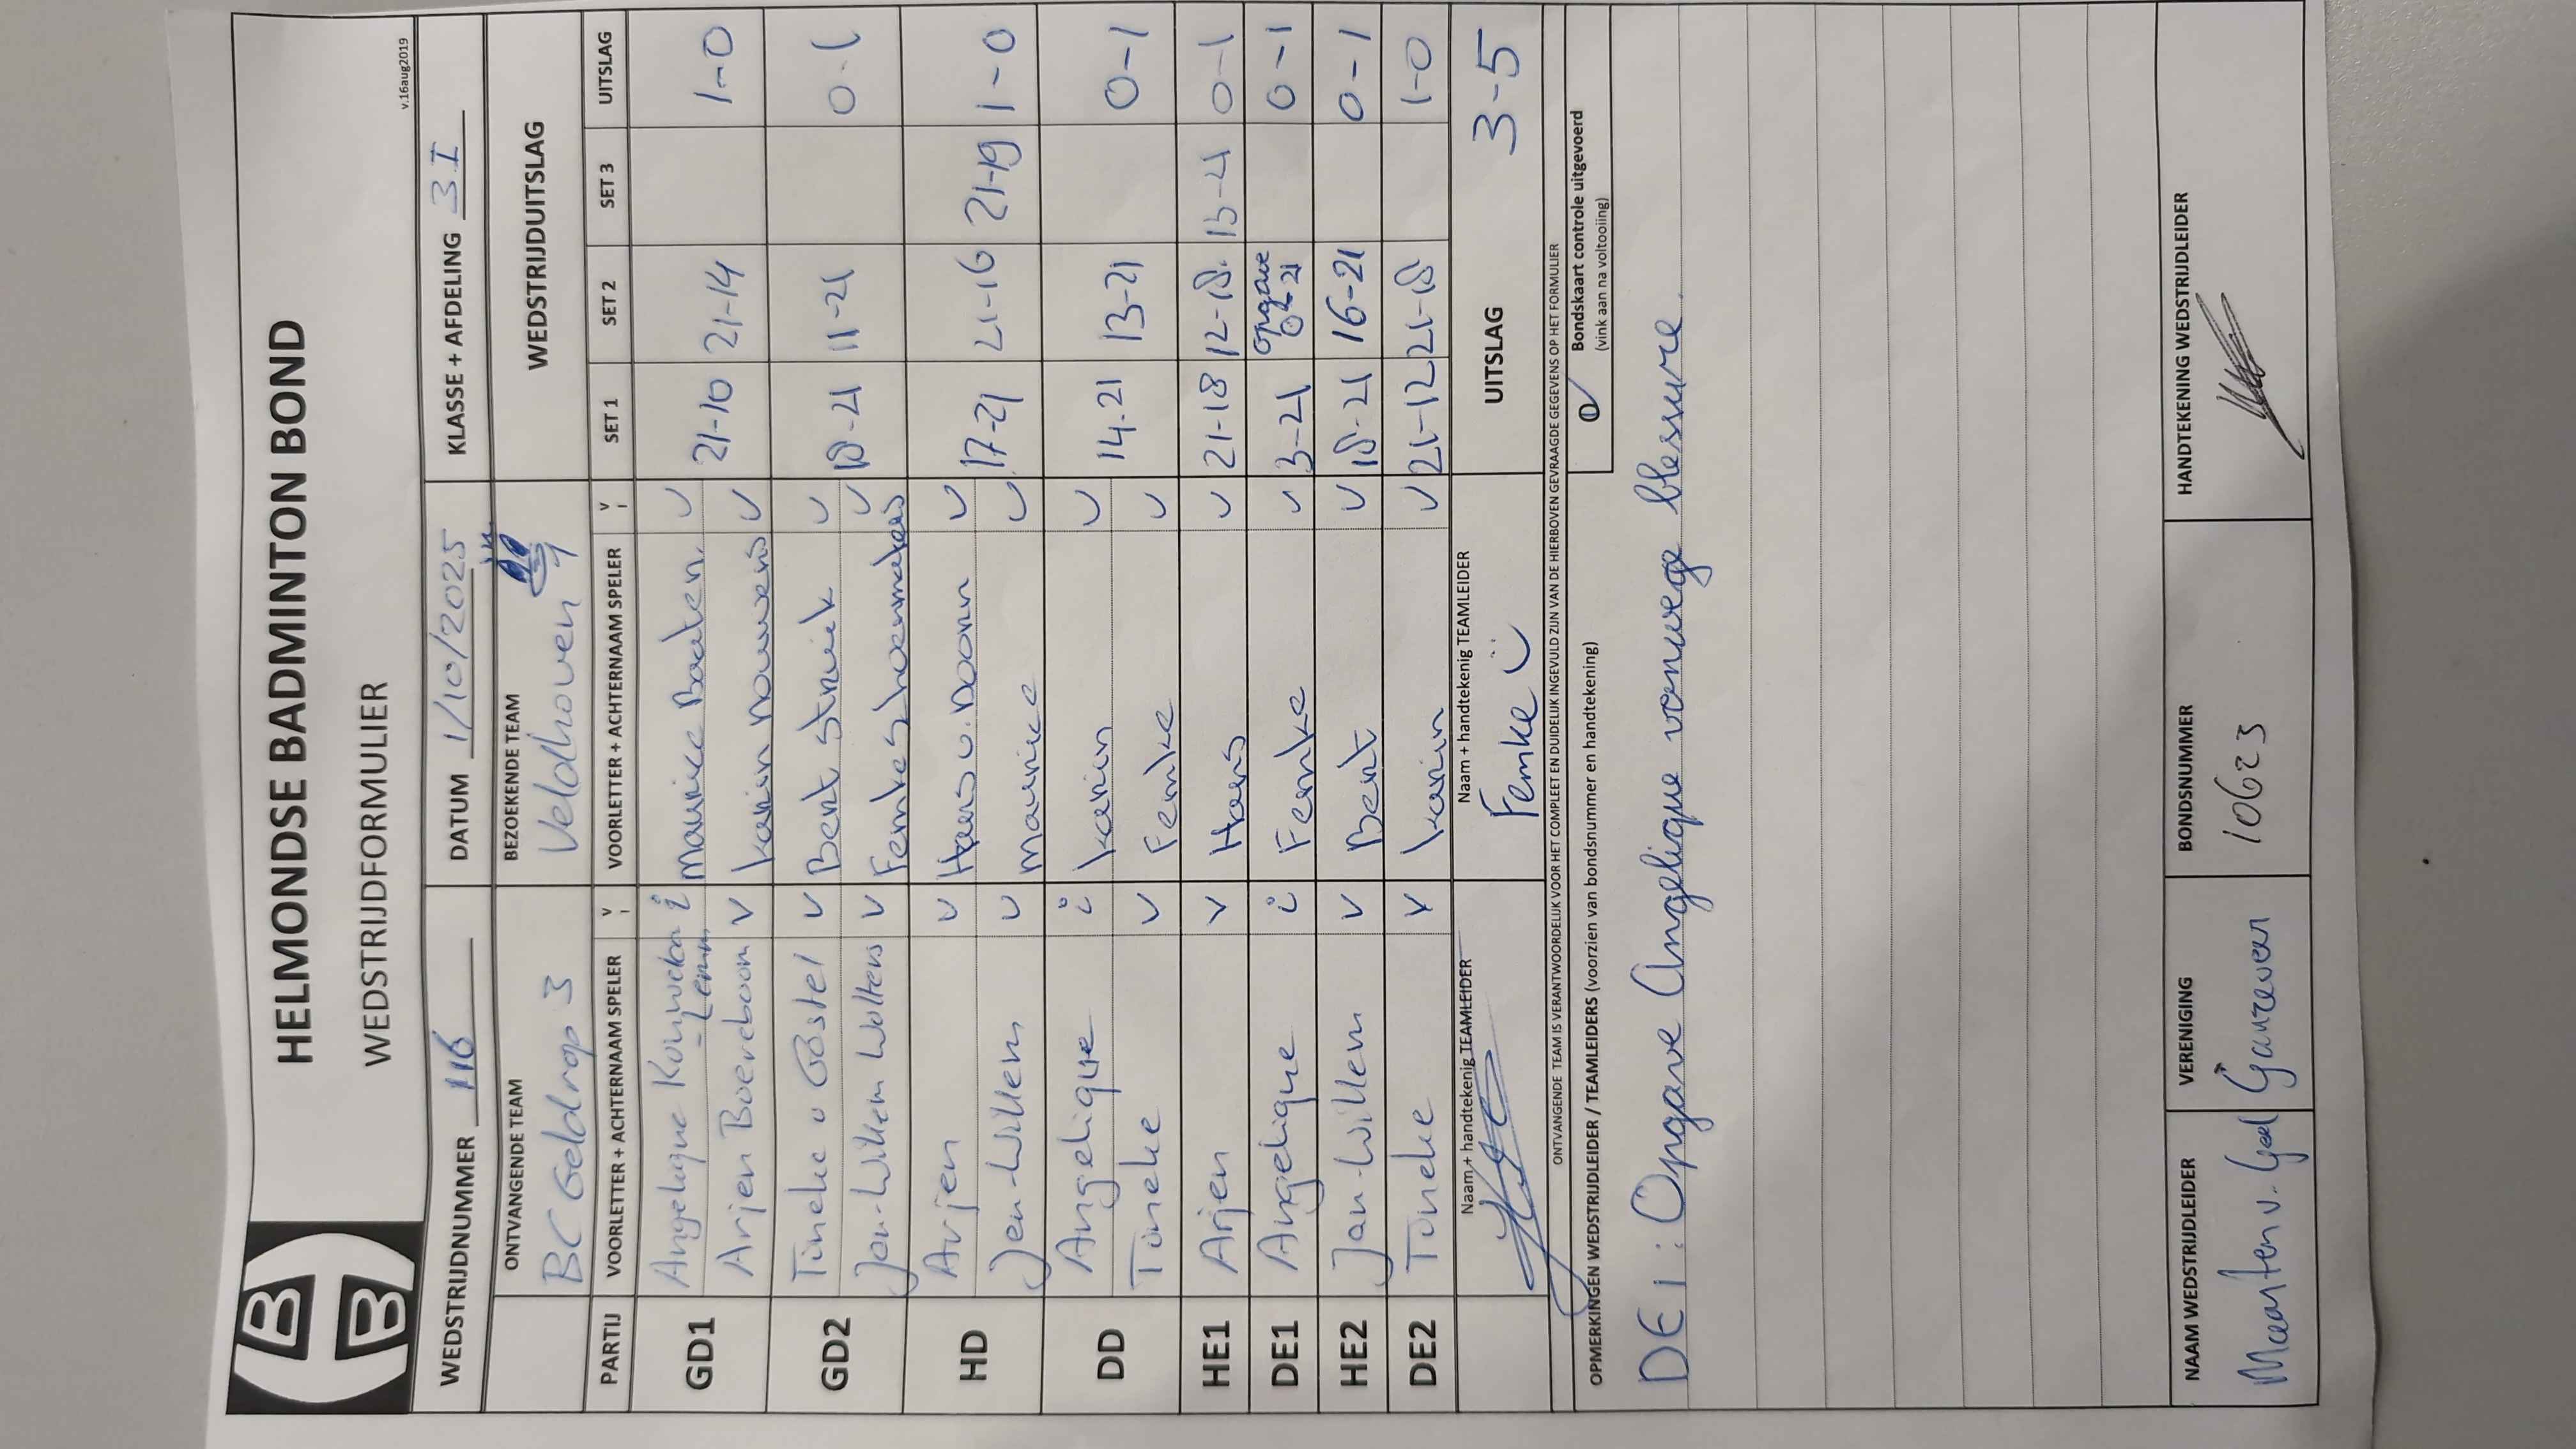 HELMONDSE BADMINTON BOND
WEDSTRIJDFORMULIER
v.16aug2019
WEDSTRIJDNUMMER 116 DATUM 1/10/2025 KLASSE + AFDELING 3.I
ONTVANGENDE TEAM BEZOEKENDE TEAM WEDSTRIJDUITSLAG
BC Geldrop 3 Veldhoven
PARTIJ VOORLETTER + ACHTERNAAM SPELER V I VOORLETTER + ACHTERNAAM SPELER V I SET 1 SET 2 SET 3 UITSLAG
GD1 Angelique i Maurice Baaten v 21-10 21-14 1-0
Arjen Boereboom v Karin Nouwens v
GD2 Tineke v Gastel v Bent Struik v 18-21 11-21 0-1
Jan-Willem Wolters v Femke Shoenmakers v
HD Arjen v Hans v. Doorn v 17-21 21-16 21-19 1-0
Jan-Willem v Maurice v
DD Angelique i Karin v 14.21 13-21 0-1
Tineke v Femke v
HE1 Arjen v Hans v 21-18 12-18. 0-1
DE1 Angelique i Femke v 3-21 opgave 0-21 0-1
HE2 Jan-Willem v Bent v 18-21 16-21 0-1
DE2 Tineke v Karin v 21-12 21-18 1-0
Naam + handtekenig TEAMLEIDER Naam + handtekenig TEAMLEIDER UITSLAG 3-5
Femke
ONTVANGENDE TEAM IS VERANTWOORDELIJK VOOR HET COMPLEET EN DUIDELIJK INGEVULD ZIJN VAN DE HIERBOVEN GEVRAAGDE GEGEVENS OP HET FORMULIER
OPMERKINGEN WEDSTRIJDLEIDER / TEAMLEIDERS (voorzien van bondsnummer en handtekening) Bondskaart controle uitgevoerd
(vink aan na voltooiing)
DE1: Opgave Angelique vanwege blessure.
NAAM WEDSTRIJDLEIDER VERENIGING BONDSNUMMER HANDTEKENING WEDSTRIJDLEIDER
Maarten v. Geel Ganzeveer 10623